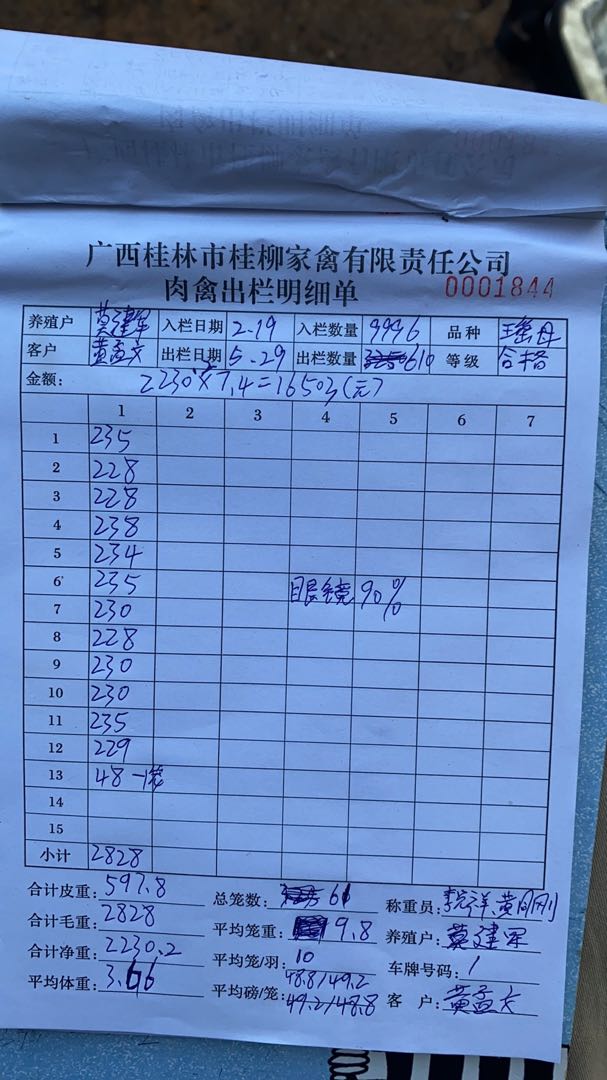 广西桂林市桂柳家禽有限责任公司
肉禽出栏明细单 0001844
养殖户 莫建军 入栏日期 2-19 入栏数量 9996 品种 瑶丹
客户 黄孟交 出栏日期 5-29 出栏数量 610 等级 合格
金额: 2230×7.4=16503(元)
1 2 3 4 5 6 7
1 235
2 228
3 228
4 238
5 234
6 235 眼镜90%
7 230
8 228
9 230
10 230
11 235
12 229
13 48
14
15
小计 2828
合计皮重: 597.8 总笼数: 61 称重员:
合计毛重: 2828 平均笼重: 9.8 养殖户: 莫建军
合计净重: 2230.2 平均笼/羽: 10 车牌号码: /
平均体重: 3.66 平均磅/笼: 48.8/49.2 客户:
49.2/48.8